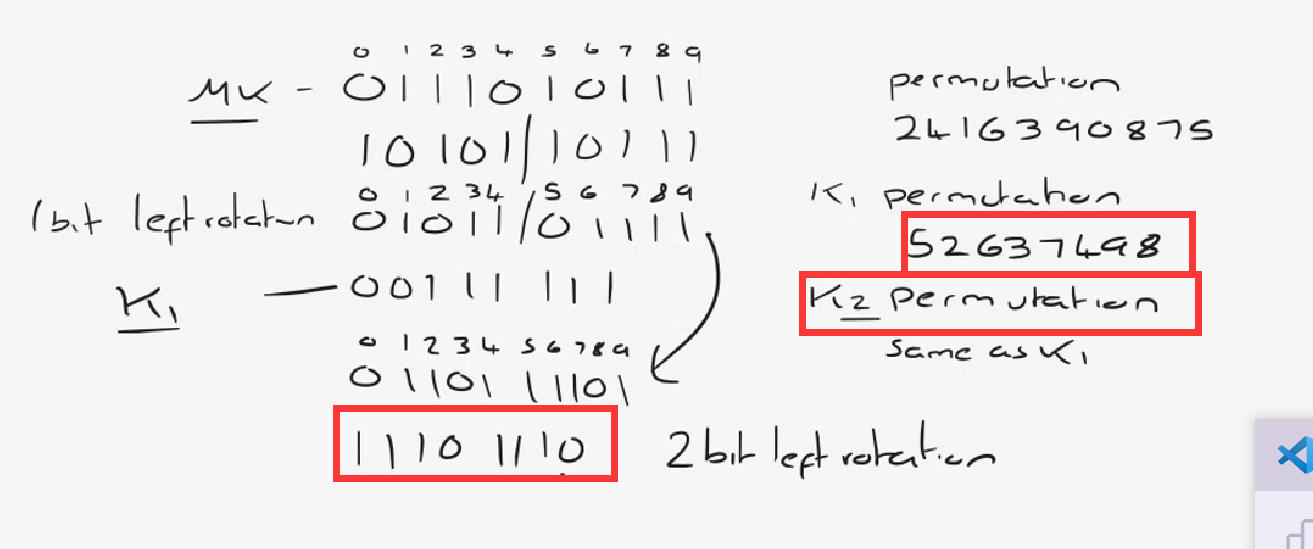 0 1 2 3 4 5 6 7 8 9
MK - 0111010111
10101/10111
0 1 2 3 4 5 6 7 8 9
1 bit left rotatn 01011/01111
K1 — 00111 111
0 1 2 3 4 5 6 7 8 9
01101 11101
1110 1110 2 bit left rotation
permutation
2416390875
K1 permutation
52637498
K2 permutation
same as K1